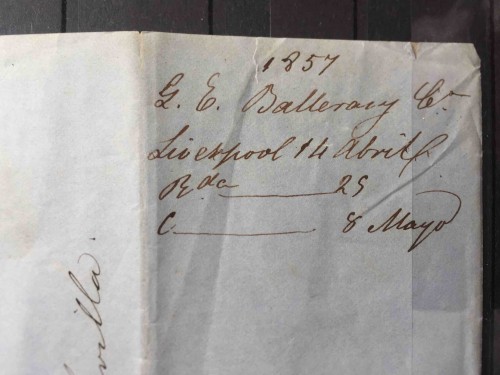 1857
G. E. Balleray Co
Liverpool 14 Abril
Rda 25
C 8 Mayo
villa